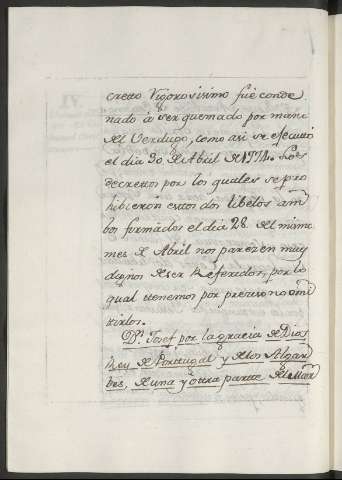 cretto Vigorosisimo fue conde
nado á ser quemado por mano
del Verdugo, como asi se ejecutó
el dia 30 de Abril de 1774. Los
decrettos por los quales se pro
hibieron esttos dos libelos am
bos formados el dia 28 del mismo
mes de Abril nos parezen muy
dignos de ser Referidos, por lo
qual ttenemos por preziso no omi
ttirlos.
Dn. Josef por la gracia de Dios
Rey de Porttugal y de los Algar
bes, de una y ottra partte del Mar